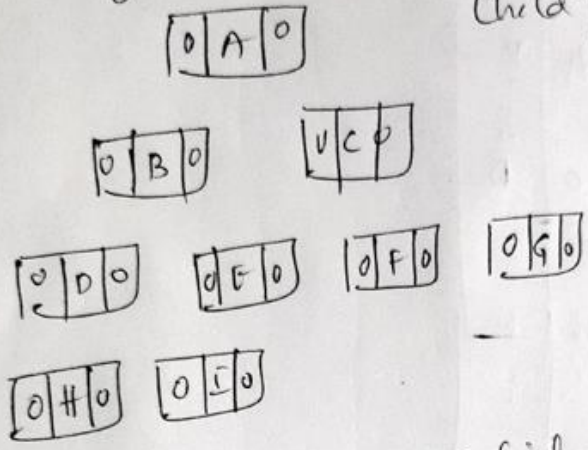 Child
0 A 0
0 B 0 U C 0
0 D 0 0 E 0 0 F 0 0 G 0
0 H 0 0 I 0